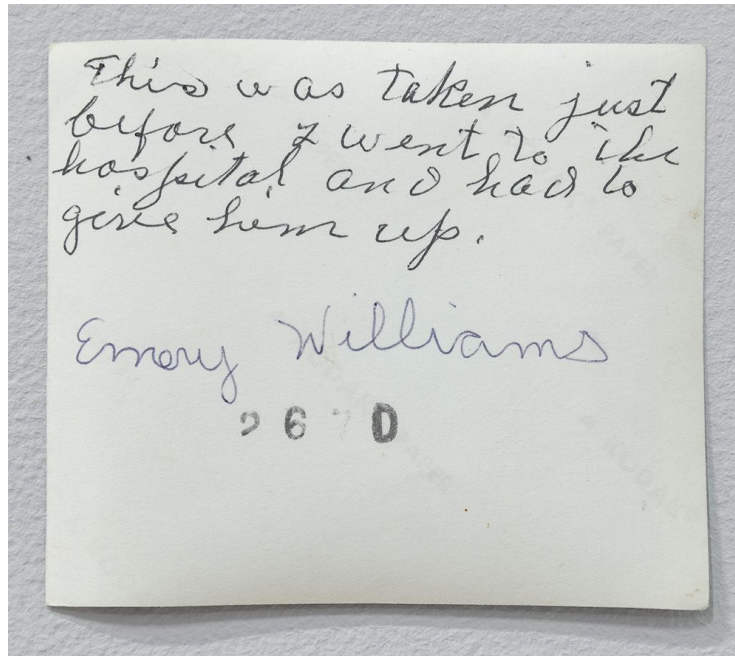 This was taken just
before I went to the
hospital and had to
give him up.
Emory Williams
26 D